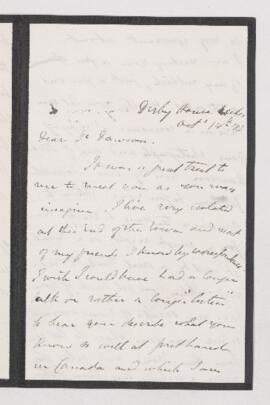 Derby House Eccles
Oct 14th
Dear Dr Dawson.
It was a great treat to
me to meet you as you may
imagine. I live very isolated
at this End of the town and most
of my friends I know by correspondence
I wish I could have had a longer
talk or rather a longer "lecture"
to hear you describe what you
know so well at first hand
in Canada and which I am